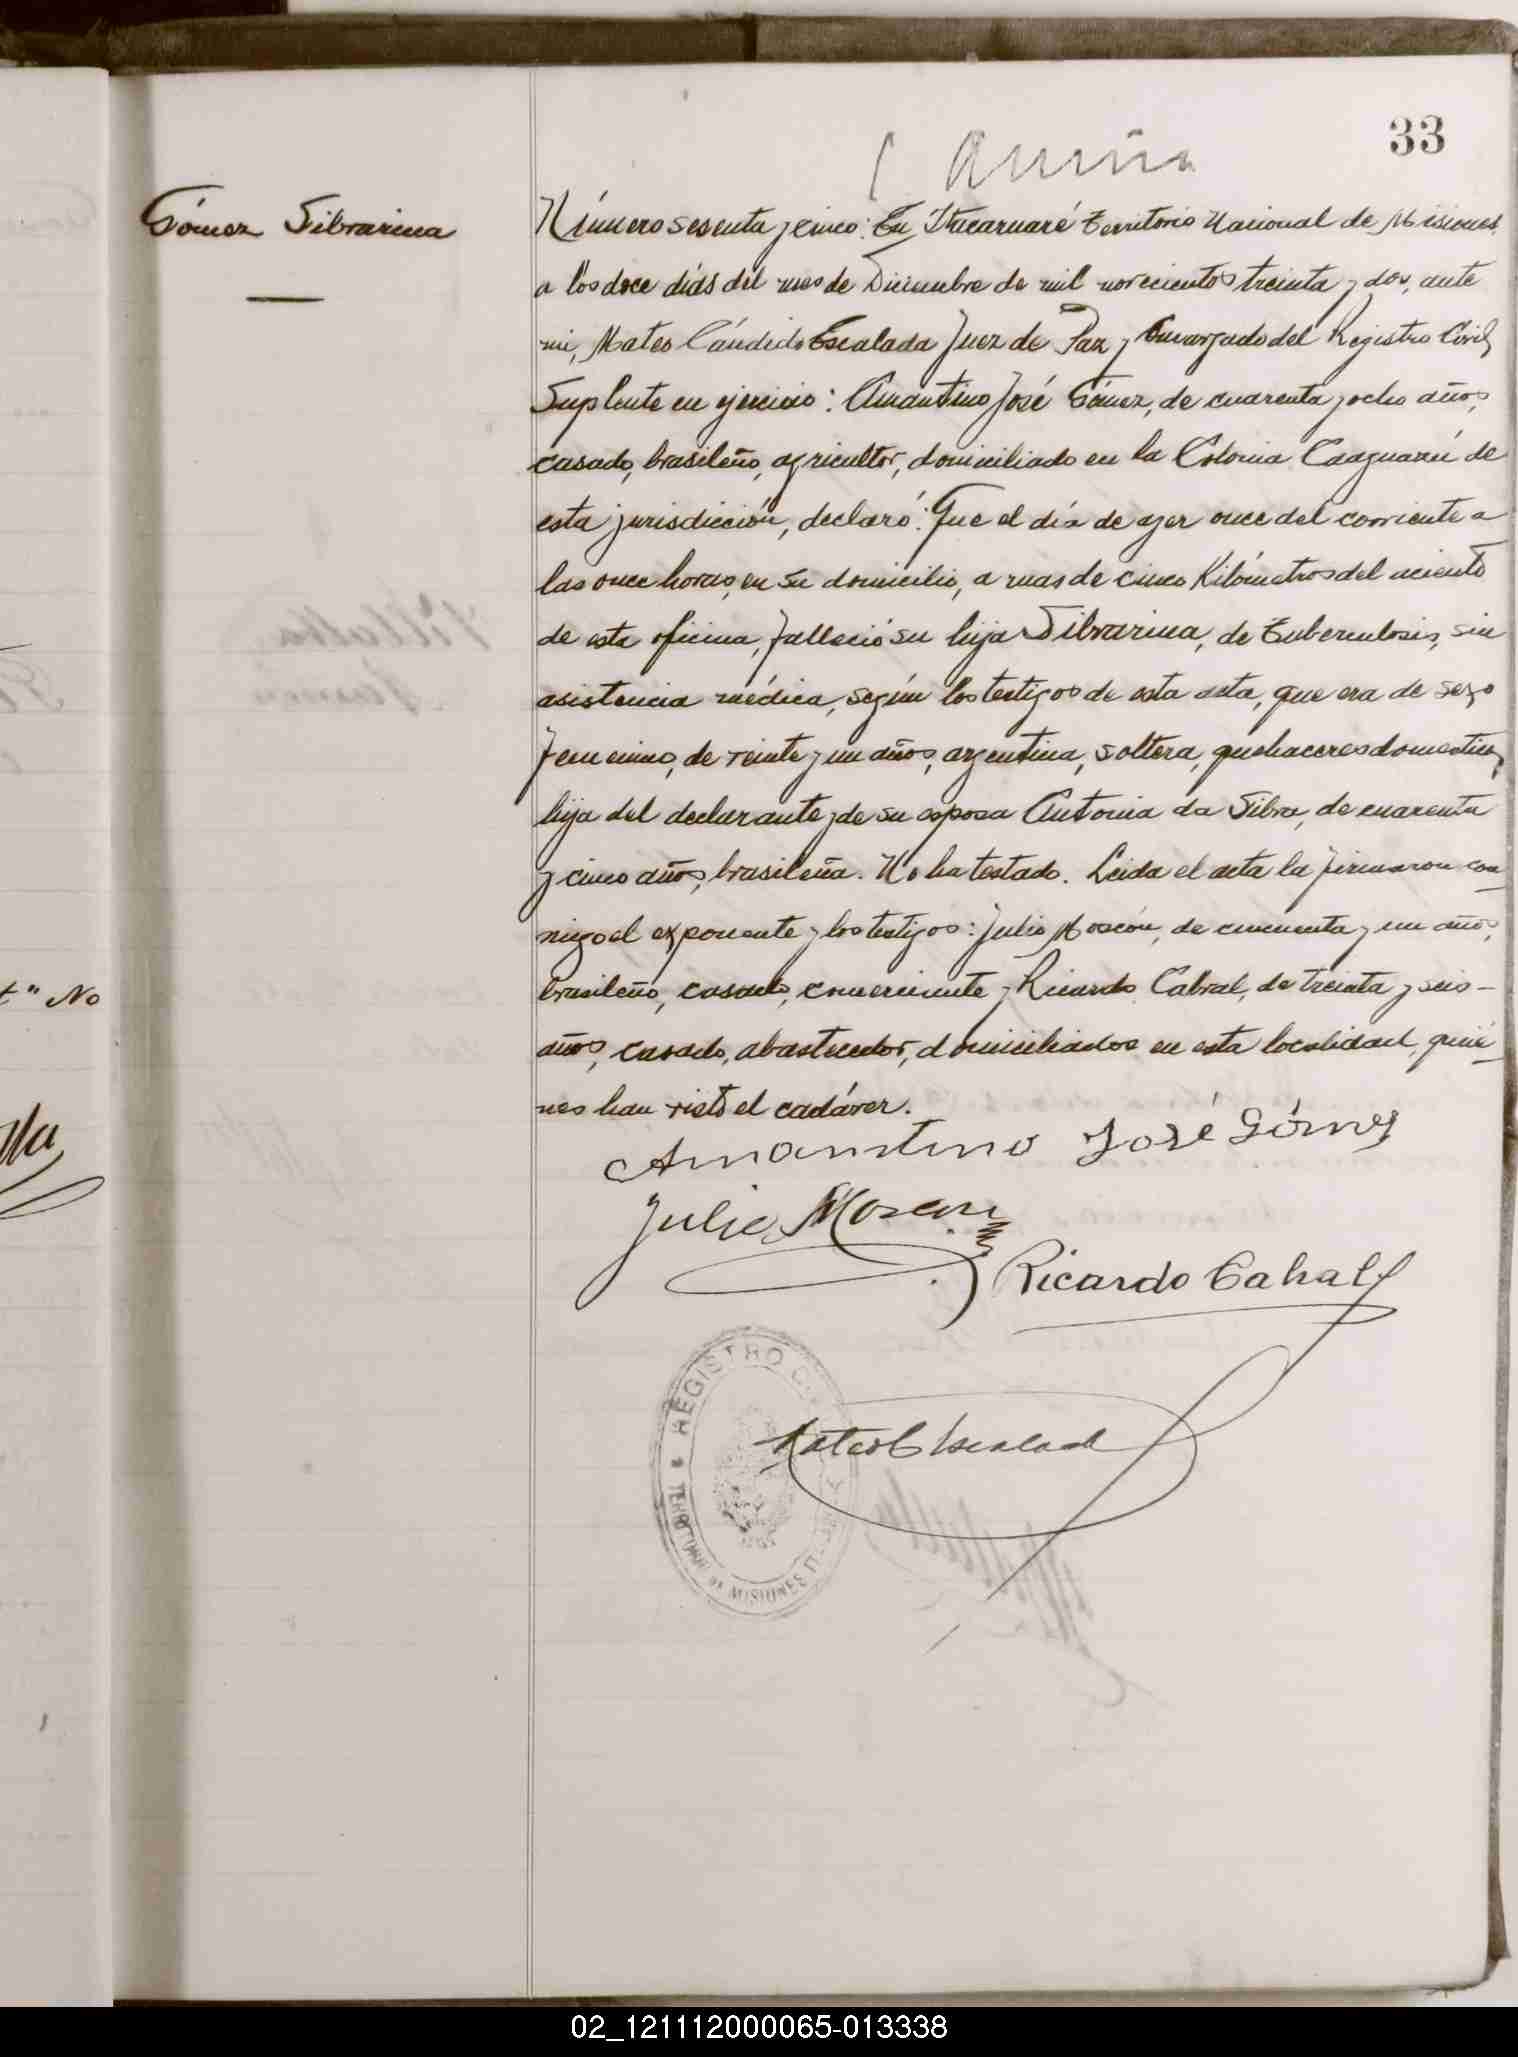 33
Gómez Silvarina
Número sesenta y cinco: En Itacaruaré Territorio Nacional de Misiones,
a los doce días del mes de Diciembre de mil novecientos treinta y dos, ante
mi, Mateo Cándido Escalada Juez de Paz y Encargado del Registro Civil
Suplente en ejercicio: Amantino José Gómez, de cuarenta y ocho años,
casado, brasileño, agricultor, domiciliado en la Colonia Caaguazú de
esta jurisdicción, declaró: Que el día de ayer once del corriente a
las once horas, en su domicilio, a mas de cinco Kilómetros del aciento
de esta oficina, falleció su hija Silvarina, de Tuberculosis, sin
asistencia médica, según los testigos de esta acta, que era de sexo
femenino, de veinte y un años, argentina, soltera, quehaceres domesticos,
hija del declarante y de su esposa Antonia da Silva, de cuarenta
y cinco años, brasileña. No ha testado. Leida el acta la firmaron con-
migo el exponente y los testigos: Julio Moscón, de cincuenta y un años,
brasileño, casado, comerciante y Ricardo Cabral, de treinta y seis-
años, casado, abastecedor, domiciliados en esta localidad, quie-
nes han visto el cadáver.
Amantino José Gómez
Julio Moscon
Ricardo Cabral
Mateo C Escalada
REGISTRO
TERRITORIO DE MISIONES
tª No
02_121112000065-013338